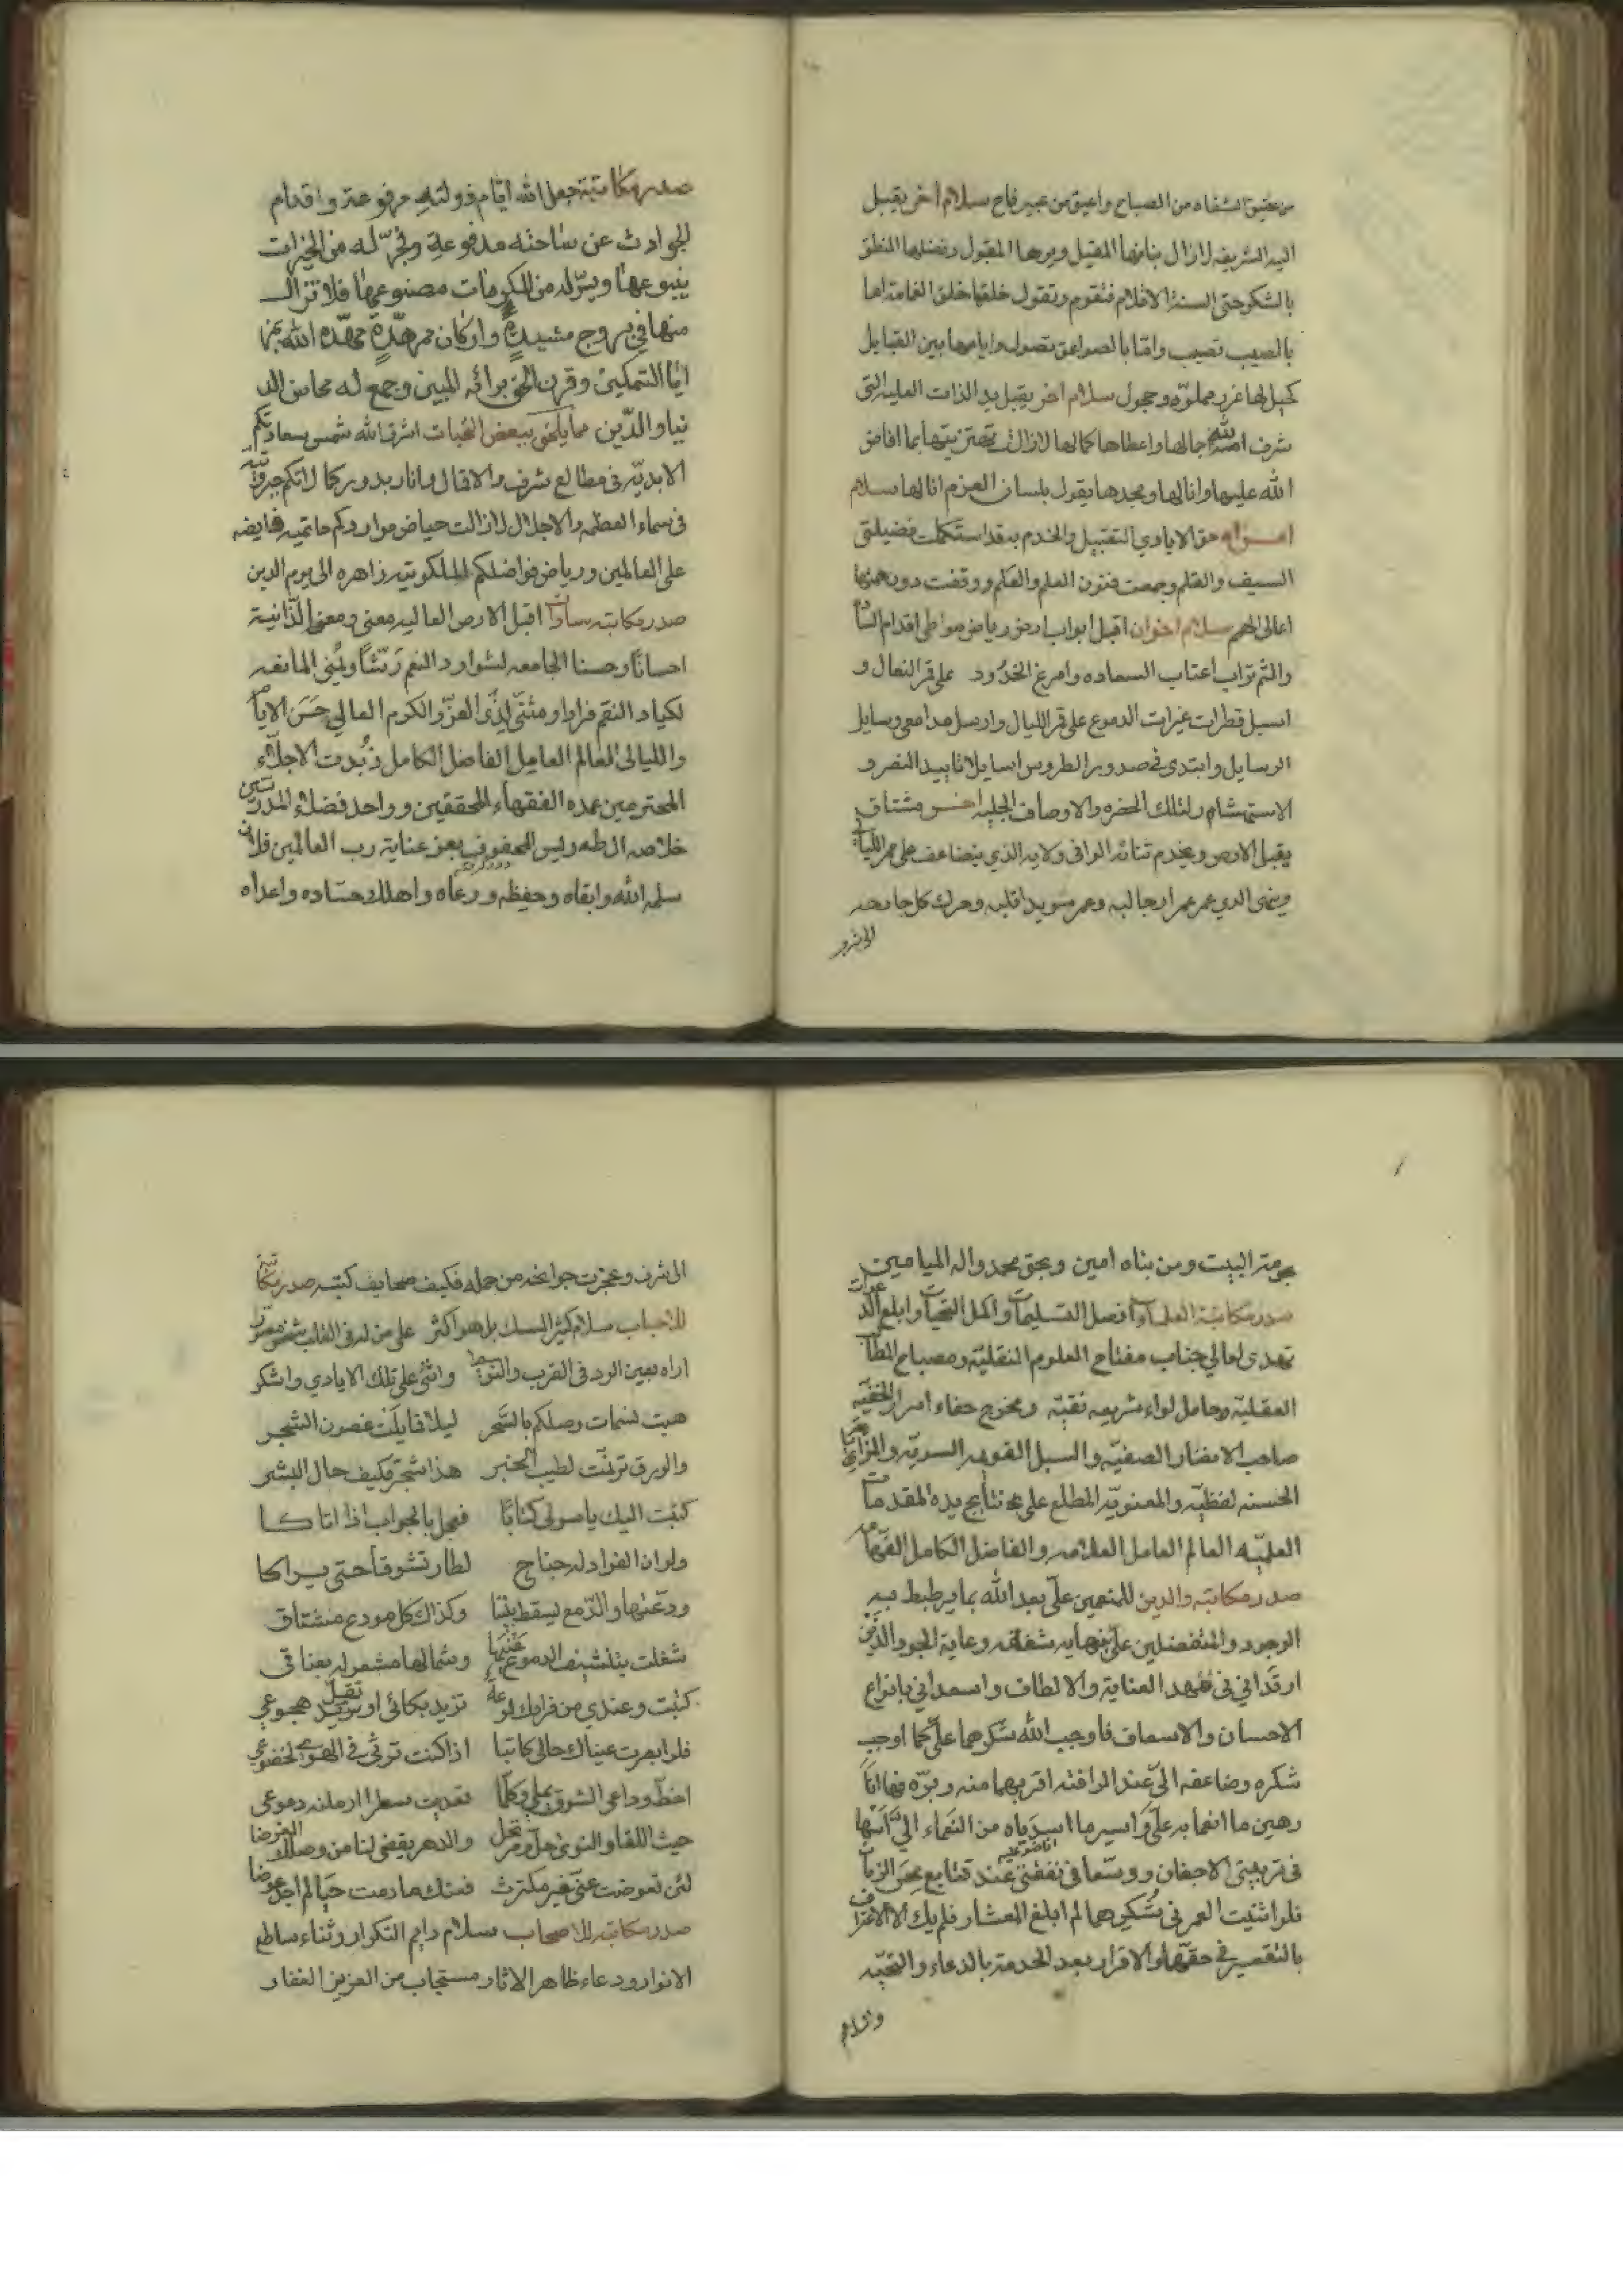 من عتيق الشفاه من الصباح واعبق من عبير فاح سلام اخر يقبل
اليد الشريفه لازال بنانها المقبل وبرها المقبول وفضلها المنطق
بالشكر حتى السنة الاقلام فتقوم وتقول خلقها خلق الغمامة اما
بالصيب تصيب واما بالصواعق تصول وايامها بين القبايل
كخيل لها غرر مملوّة وحجول سلام اخر يقبل يد الذات العليه التي
شرف الله جمالها واعطاها كمالها لازالت بما افاض
الله عليها وانالها ومجدها يقول بلسان العزم انا لها سلام
اخر حق الايادي التقبيل والخدم به قد استكملت فضيلتي
السيف والقلم وجمعت فنون العلم والعلم ووقفت دون همتها
اعالى الهمم سلام اخوان اقبل ابواب ارض رياض مواطى اقدام
والثم تراب اعتاب السعاده وامرغ الخدود على النعال و
اسبل قطرات عبرات الدموع على الليال وارسل مدامعى وسايل
الرسايل وابتدى فى صدور الطروس اسايلا تاييد النصر و
لتلك الحضره والاوصاف الجليه اخر مشتاق
يقبل الارض ويخدم بثنائه الوافى ولايه الذي يتضاعف على ممر الليالى
وينهى الذي عمر ارجا لبه وعمر سويدا قلبه وحرك كل جارحه
الى شرف
صدر مكاتبة جعل الله ايام دولته مرفوعة واقدام
الحوادث عن ساحته مدفوعة وفجّر له من الخيرات
ينبوعها ويسّر له من المكرمات مصنوعها فلا تزال
منها فى بروج مشيدةٍ واركان ممهّدةٍ مهّده الله
التمكين وقرن الحق برائه المبين وجمع له محاسن الد
نيا والدّين مما يلحق ببعض اشرق الله شمس سعادتكم
الابديّه فى مطالع شرف والاقبال وانار بدور كمالاتكم
فى سماء العظمه والاجلال لازالت حياض مواردكم حاتميه فايضه
على العالمين ورياض فواضلكم الملكوتيه زاهره الى يوم الدين
صدر مكاتبه سادات اقبل الارض العاليه معنى ومغنى الدّانية
احسانًا وحسنا الجامعه لشوارد النعم المانعه
لكياد النقم فرادا ومثنى لذى العزّ والكرم العالي حَسَن الايام
والليالى العالم العامل الفاضل الكامل زُبدت الاجلّاء
المحترمين عمده الفقهاء المحققين وواحد فضلاء المدرسين
خلاصه ال طه ويس المحفوف بعز عناية رب العالمين فلان
سلمه الله وابقاه وحفظه ورعاه واهلك حساده واعداه
بحرمة البيت ومن بناه امين وبحق محمد واله الميامين
صدر مكاتبة العلماء افضل التسليمات واكمل التحيات وابلغ الدعوات
تهدى لعالي جناب مفتاح العلوم النقليّة ومصباح
العقليّة وحامل لواء شريعه نقيّه ومخرج خفاء اسرار الخفيّه
صاحب الانظار الصفيّه والسبل القويمه السريّه والمزايا
الحسنه لفظيّه والمعنويّه المطلع على نتايج هذه المقدمات
العلميّه العالم العامل العلامه والفاضل الكامل الفهامه
صدر مكاتبه والدين للمنعمين علىّ بعد الله بما يرتبط به
الوجود والمتفضلين علىّ بنهايه شفاقه وعاية الجود الذين
ارقداني فى مهد العناية والالطاف واسعداني بانواع
الاحسان والاسعاف فاوجب الله شكرهما علىّ كما اوجب
شكره وضاعفه الىّ عند الرافته اقربهما منه وبرّه فها انا
رهين ما انعما به علىّ واسير ما اسدياه من النعماء الىّ
فى تربيتى الاجفان ووسّعا فى نفقتى عند تتابع محن الزمان
فلو افنيت العمر فى شكرهما لم ابلغ المعشار فلم يك الا الاعتراف
بالتقصير فى حقهما والاقرار بعد الخدمة بالدعاء والتحيّه
والسلام
الى شرف وعجزت جوانحه من حمله فكيف صحايف كتبه صدر مكاتبة
للاحباب سلام كنثر المسك بل هو اكثر على من له فى القلب شخص مصور
اراه بعين الود فى القرب والنوى واثنى على تلك الايادي واشكر
هبت نسمات وصلكم بالسَّحَر ليلا فمايلت غصون الشجر
والورق ترنّت لطيب الخبر هذا شجر فكيف حال البشر
كتبت اليك يا سولى كتابًا فعجل بالجواب اذا اتاكا
ولو ان الفواد له جناح لطار تشوقًا حتى يراكا
ودعتها والدّمع يسقط بيننا وكذاك كل مودع مشتاق
شغلت بتنشيف الدموع يمينها وشمالها مشغوله بعناقى
كتبت وعندي من فراقك لوعة تزيد بكائى او تقل هجوعي
فلو ابصرت عيناك حالى كاتبا اذا كنت ترثى فى الهوى لخضوعي
اخطّ وداعى الشوق يملي وكلّما تعديت سطرا ارملته دموعى
حيث اللقا والنوى حل ومرتحل والدهر يقضى لنا من وصلك الغرضا
لئن تعوضت عنّى غير مكترث فعنك ما دمت حيا لم اجد عوضا
صدر مكاتبه للاصحاب سلام دايم التكرار وثناء ساطع
الانوار ودعاء ظاهر الاثار مستجاب من العزيز الغفار